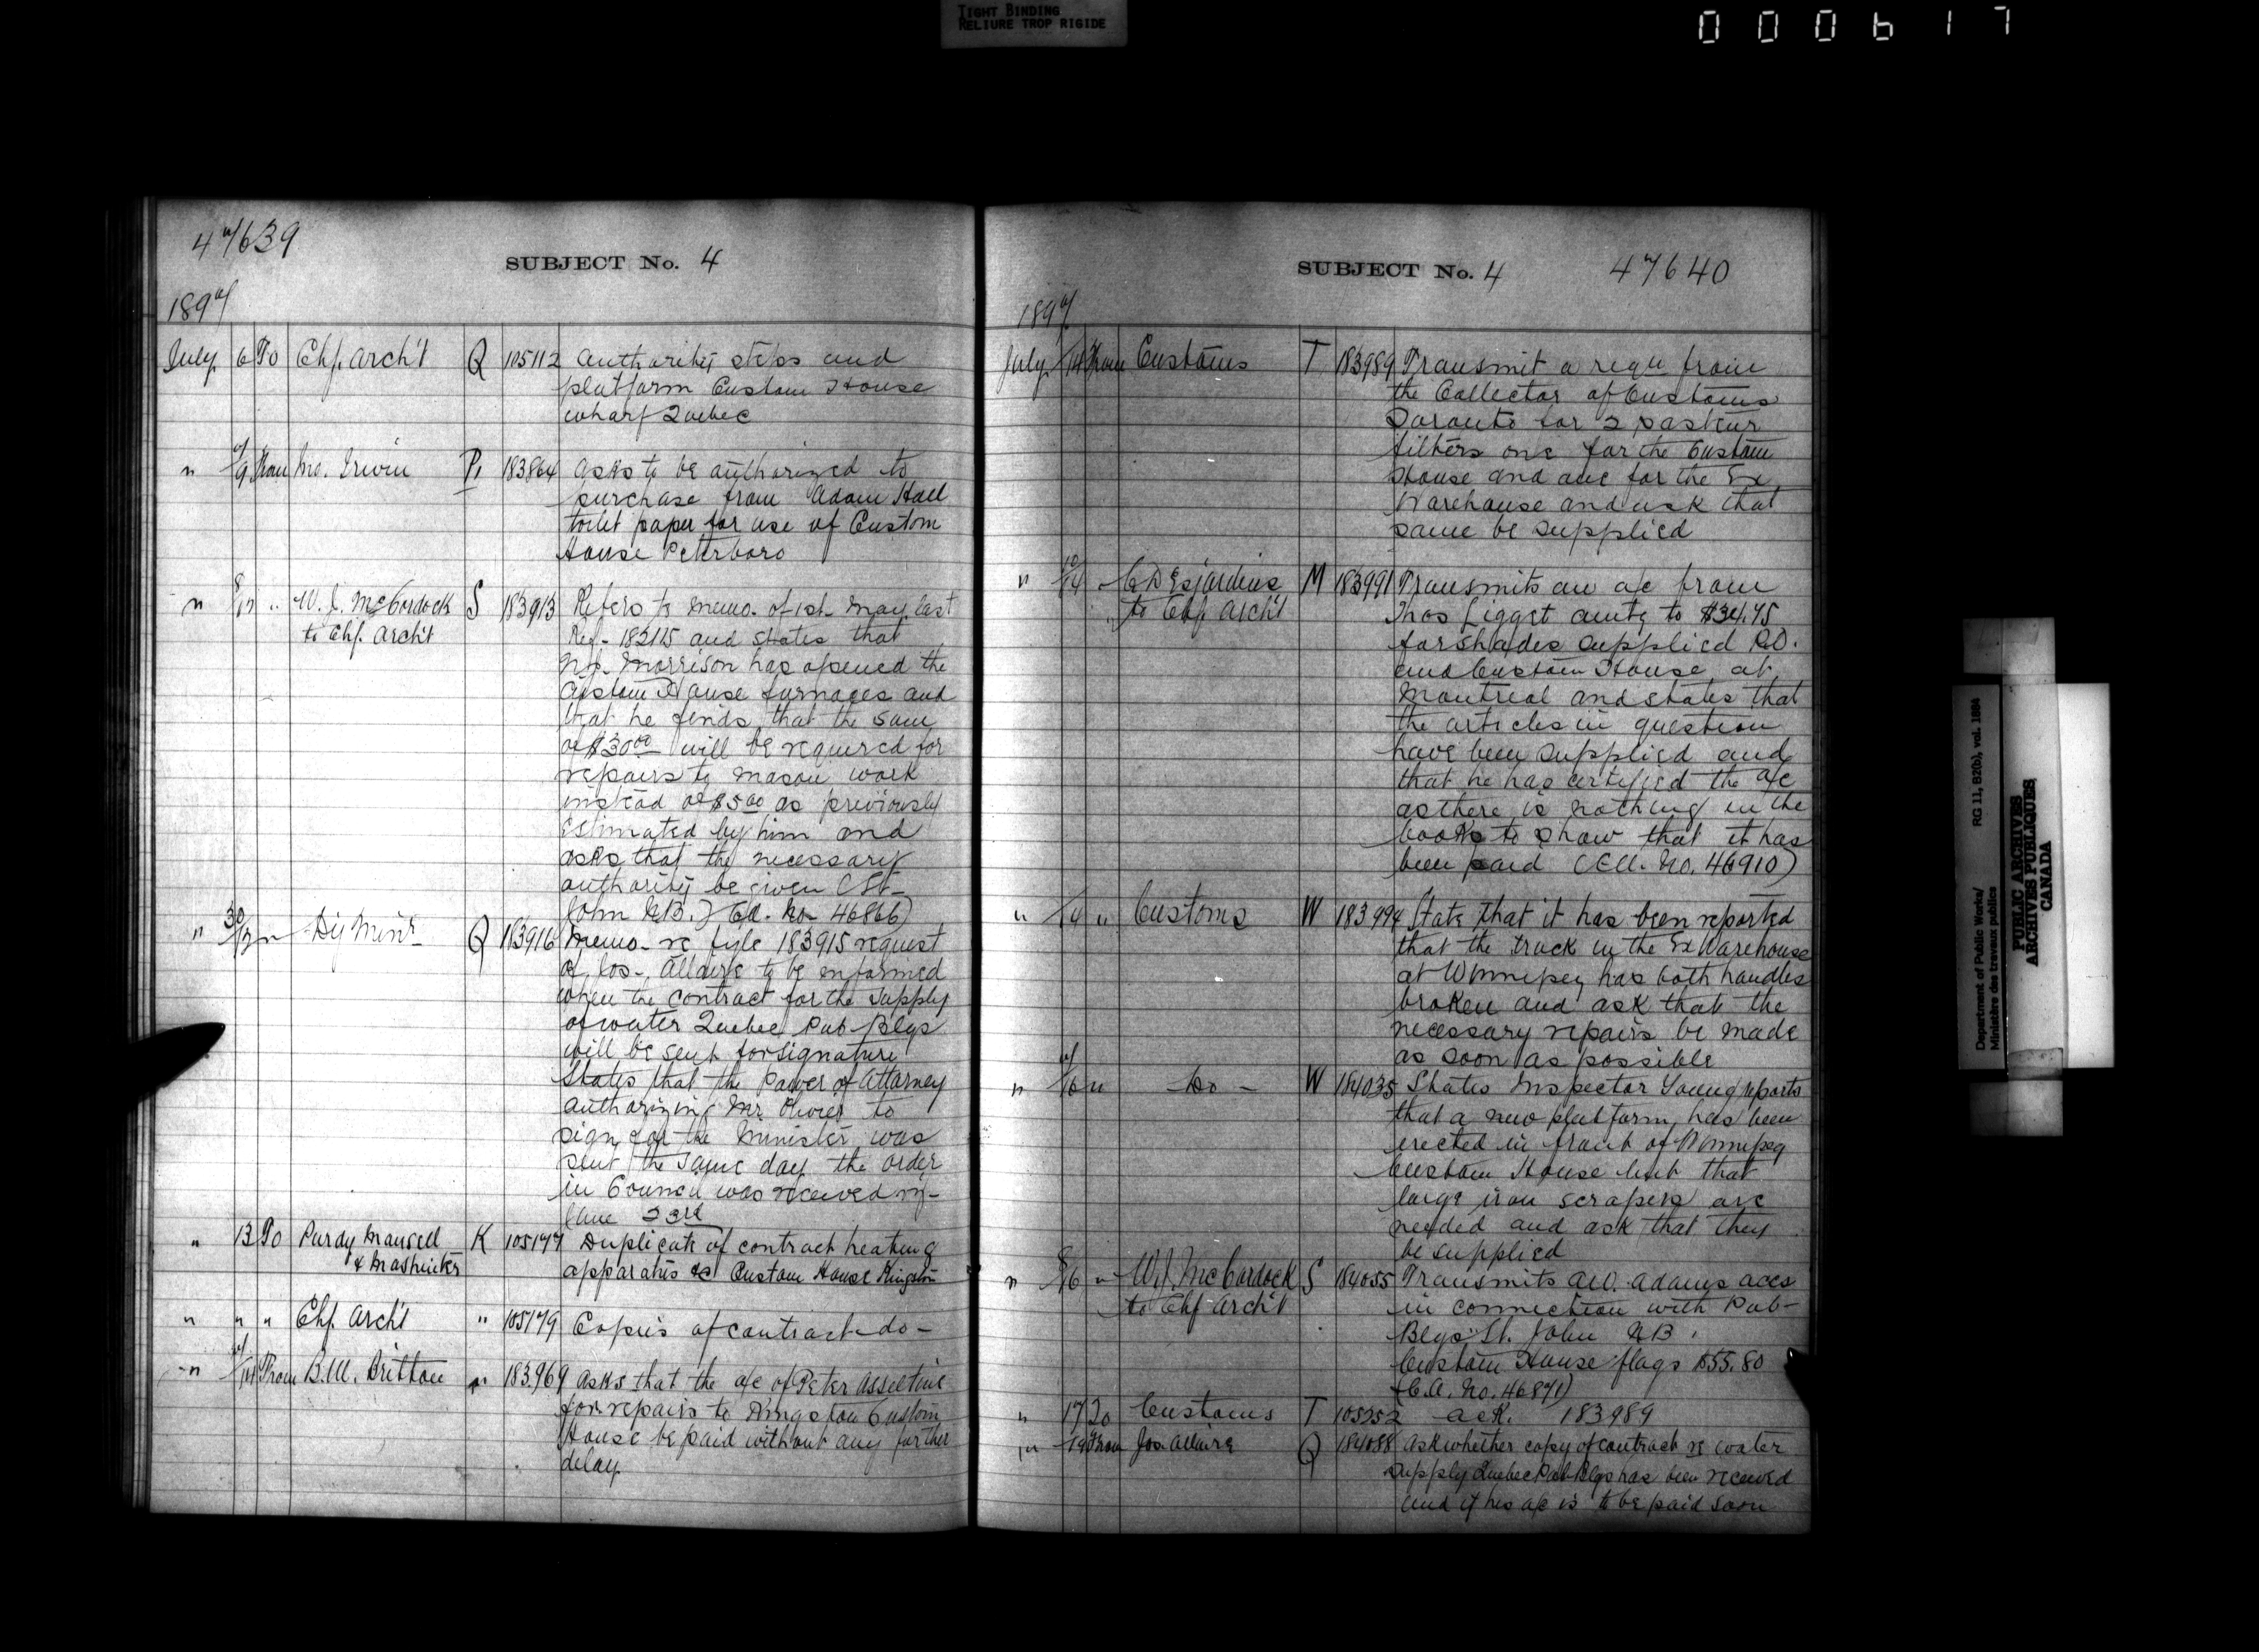 TIGHT BINDING
RELIURE TROP RIGIDE
000617
47639
SUBJECT No. 4
1897
July 6 To Chf. Arch't Q 105112 Authority steps and
platform Custom House
wharf Quebec
" 7/9 From Jno. Irwin P. 183864 asks to be authorized to
purchase from Adam Hall
toilet paper for use of Custom
House Peterboro
" 8/12 " W. J. McCordock S 183913 Refers to memo. of 1st May last
to Chf. Arch't Ref. 182115 and states that
Morrison has opened the
Custom House furnaces and
that he finds that the sum
of $30.00 will be required for
repairs to mason work
instead of $5.00 as previously
estimated by him and
asks that the necessary
authority be given (St.
John N.B.) Ca. No. 46866)
" 30/12 " Dy Minr Q 183916 Memo. re fyle 183915 request
of Jos. Allaire to be informed
when the contract for the supply
of water Quebec Pub Blgs
will be sent for signature
States that the Power of Attorney
authorizing Mr. to
sign for the Minister was
sent the same day the order
in Council was received viz-
June 23rd
" 13 To Purdy Mansell K 105177 Duplicate of contract heating
& Mashinter apparatus Custom House Kingston
" " " Chf. Arch't " 105179 Copies of contract do -
" /14 From B.M. Britton " 183969 asks that the a/c of Peter Asseltine
for repairs to Kingston Custom
House be paid without any further
delay
SUBJECT No. 4 47640
1897
July /14 From Customs T 183989 Transmit a reqn from
the Collector of Customs
Toronto for 2 pasteur
filters one for the Custom
House and one for the Ex
Warehouse and ask that
same be supplied
" 10/14 " C Desjardins M 183991 Transmits an a/c from
to Chf Arch't Thos Ligget amtg to $34.75
for shades supplied P.O.
and Custom House at
Montreal and states that
the articles in question
have been supplied and
that he has certified the a/c
as there is nothing in the
books to show that it has
been paid (Ca. No. 46910)
" /14 " Customs W 183994 State that it has been reported
that the truck in the Ex Warehouse
at Winnipeg has both handles
broken and ask that the
necessary repairs be made
as soon as possible
" /16 " - Do - W 184035 States Inspector Young reports
that a new platform has been
erected in front of Winnipeg
Custom House but that
large iron scrapers are
needed and ask that they
be supplied
" 8/16 " W.J. McCordock S 184055 Transmits A.W. Adams accs
to Chf Arch't in connection with Pub-
Blgs St. John N.B.
Custom House flags $55.80
(C.A. No. 46871)
" 17 To Customs T 105252 ack. 183989
" 19 From Jos Allaire Q 184088 ask whether copy of contract re water
supply Quebec Pub Blgs has been received
and if his a/c is to be paid soon
Department of Public Works/ RG 11, B2(b), vol. 1884
Ministère des travaux publics
PUBLIC ARCHIVES
ARCHIVES PUBLIQUES
CANADA